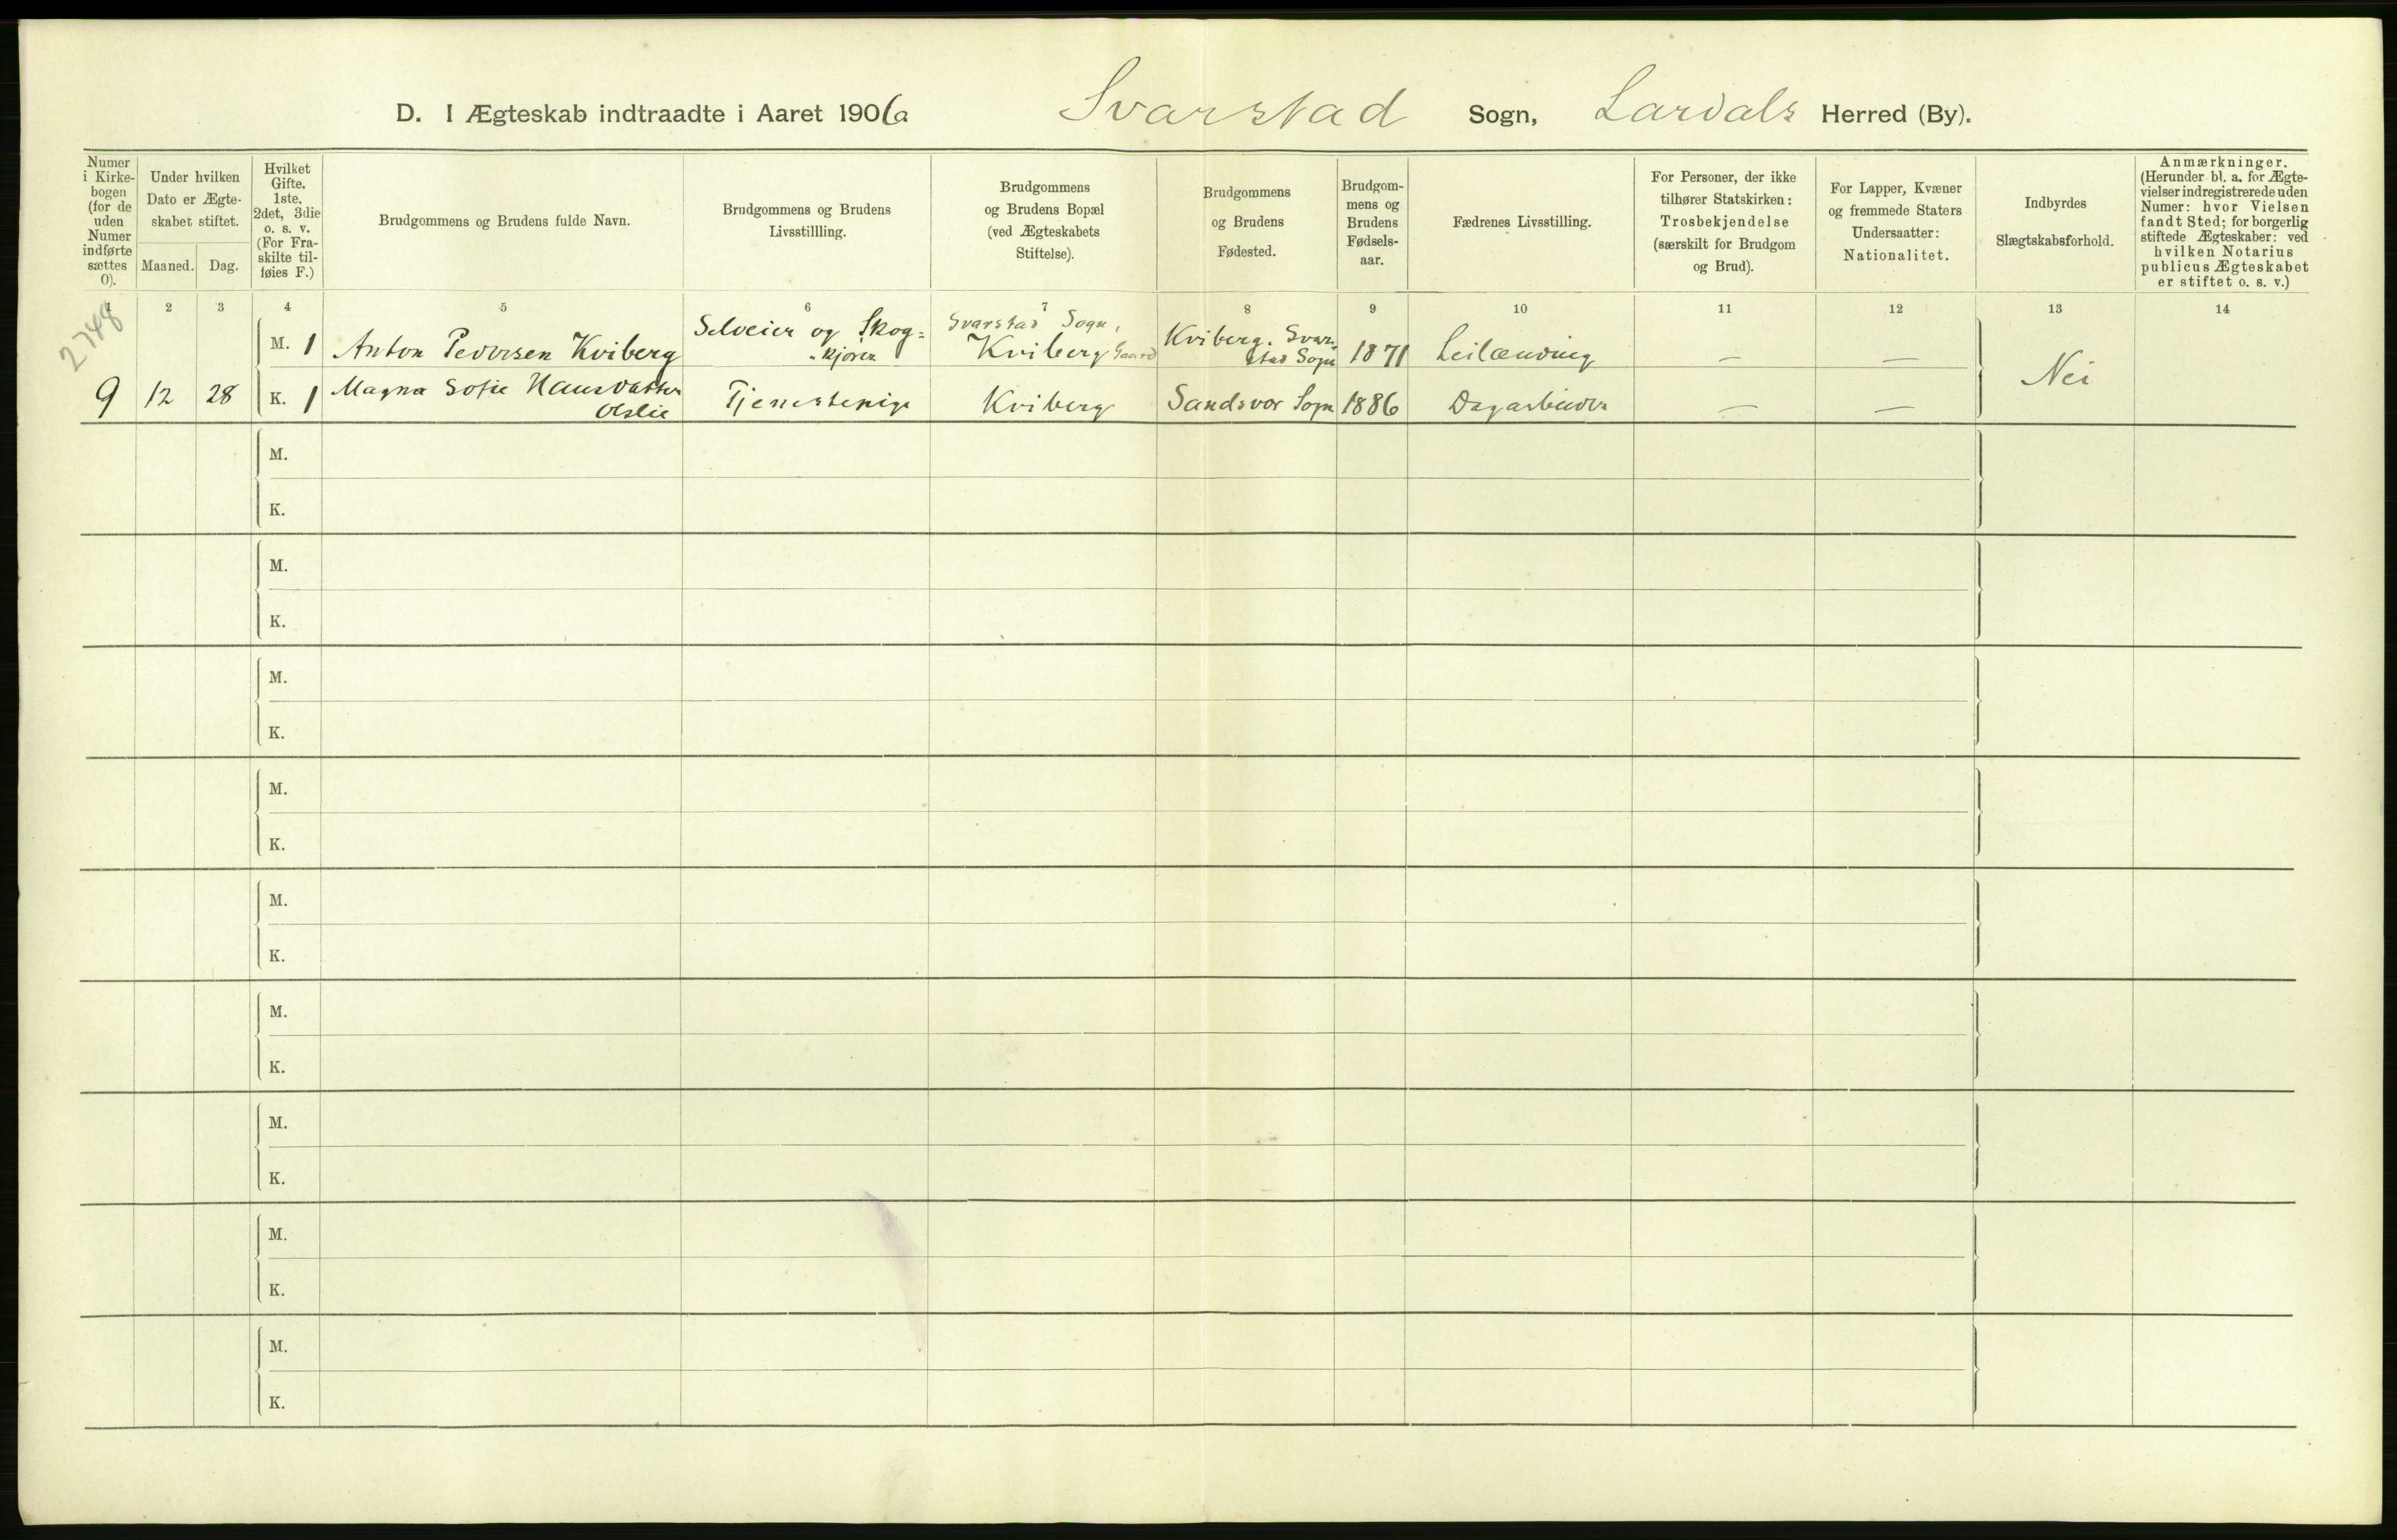 D. I Ægteskab indtraadte i Aaret 1906 Svarstad Sogn, Lardals Herred (By).
Numer
i Kirke-
bogen
(for de
uden
Numer
indførte
sættes
0).
Under hvilken
Dato er Ægte-
skabet stiftet.
Maaned. Dag.
Hvilket
Gifte.
1ste.
2det, 3die
o. s. v.
(For Fra-
skilte til-
føies F.)
Brudgommens og Brudens fulde Navn.
Brudgommens og Brudens
Livsstillling.
Brudgommens
og Brudens Bopæl
(ved Ægteskabets
Stiftelse).
Brudgommens
og Brudens
Fødested.
Brudgom-
mens og
Brudens
Fødsels-
aar.
Fædrenes Livsstilling.
For Personer, der ikke
tilhører Statskirken:
Trosbekjendelse
(særskilt for Brudgom
og Brud).
For Lapper, Kvæner
og fremmede Staters
Undersaatter:
Nationalitet.
Indbyrdes
Slægtskabsforhold.
Anmærkninger.
(Herunder bl. a. for Ægte-
vielser indregistrerede uden
Numer: hvor Vielsen
fandt Sted; for borgerlig
stiftede Ægteskaber: ved
hvilken Notarius
publicus Ægteskabet
er stiftet o. s. v.)
1 2 3 4 5 6 7 8 9 10 11 12 13 14
2748
M. 1 Anton Pedersen Kviberg
Selveier og Skog=
"kjører
Svarstad Sogn,
Kviberg Gaard
Kviberg. Svar-
stad Sogn
1871 Leilænding — —
9 12 28 K. 1
Magna Sofie Hansdatter
Olslie
Tjenestepige Kviberg Sandsvær Sogn 1886 Dagarbeider — —
Nei
M.
K.
M.
K.
M.
K.
M.
K.
M.
K.
M.
K.
M.
K.
M.
K.
M.
K.